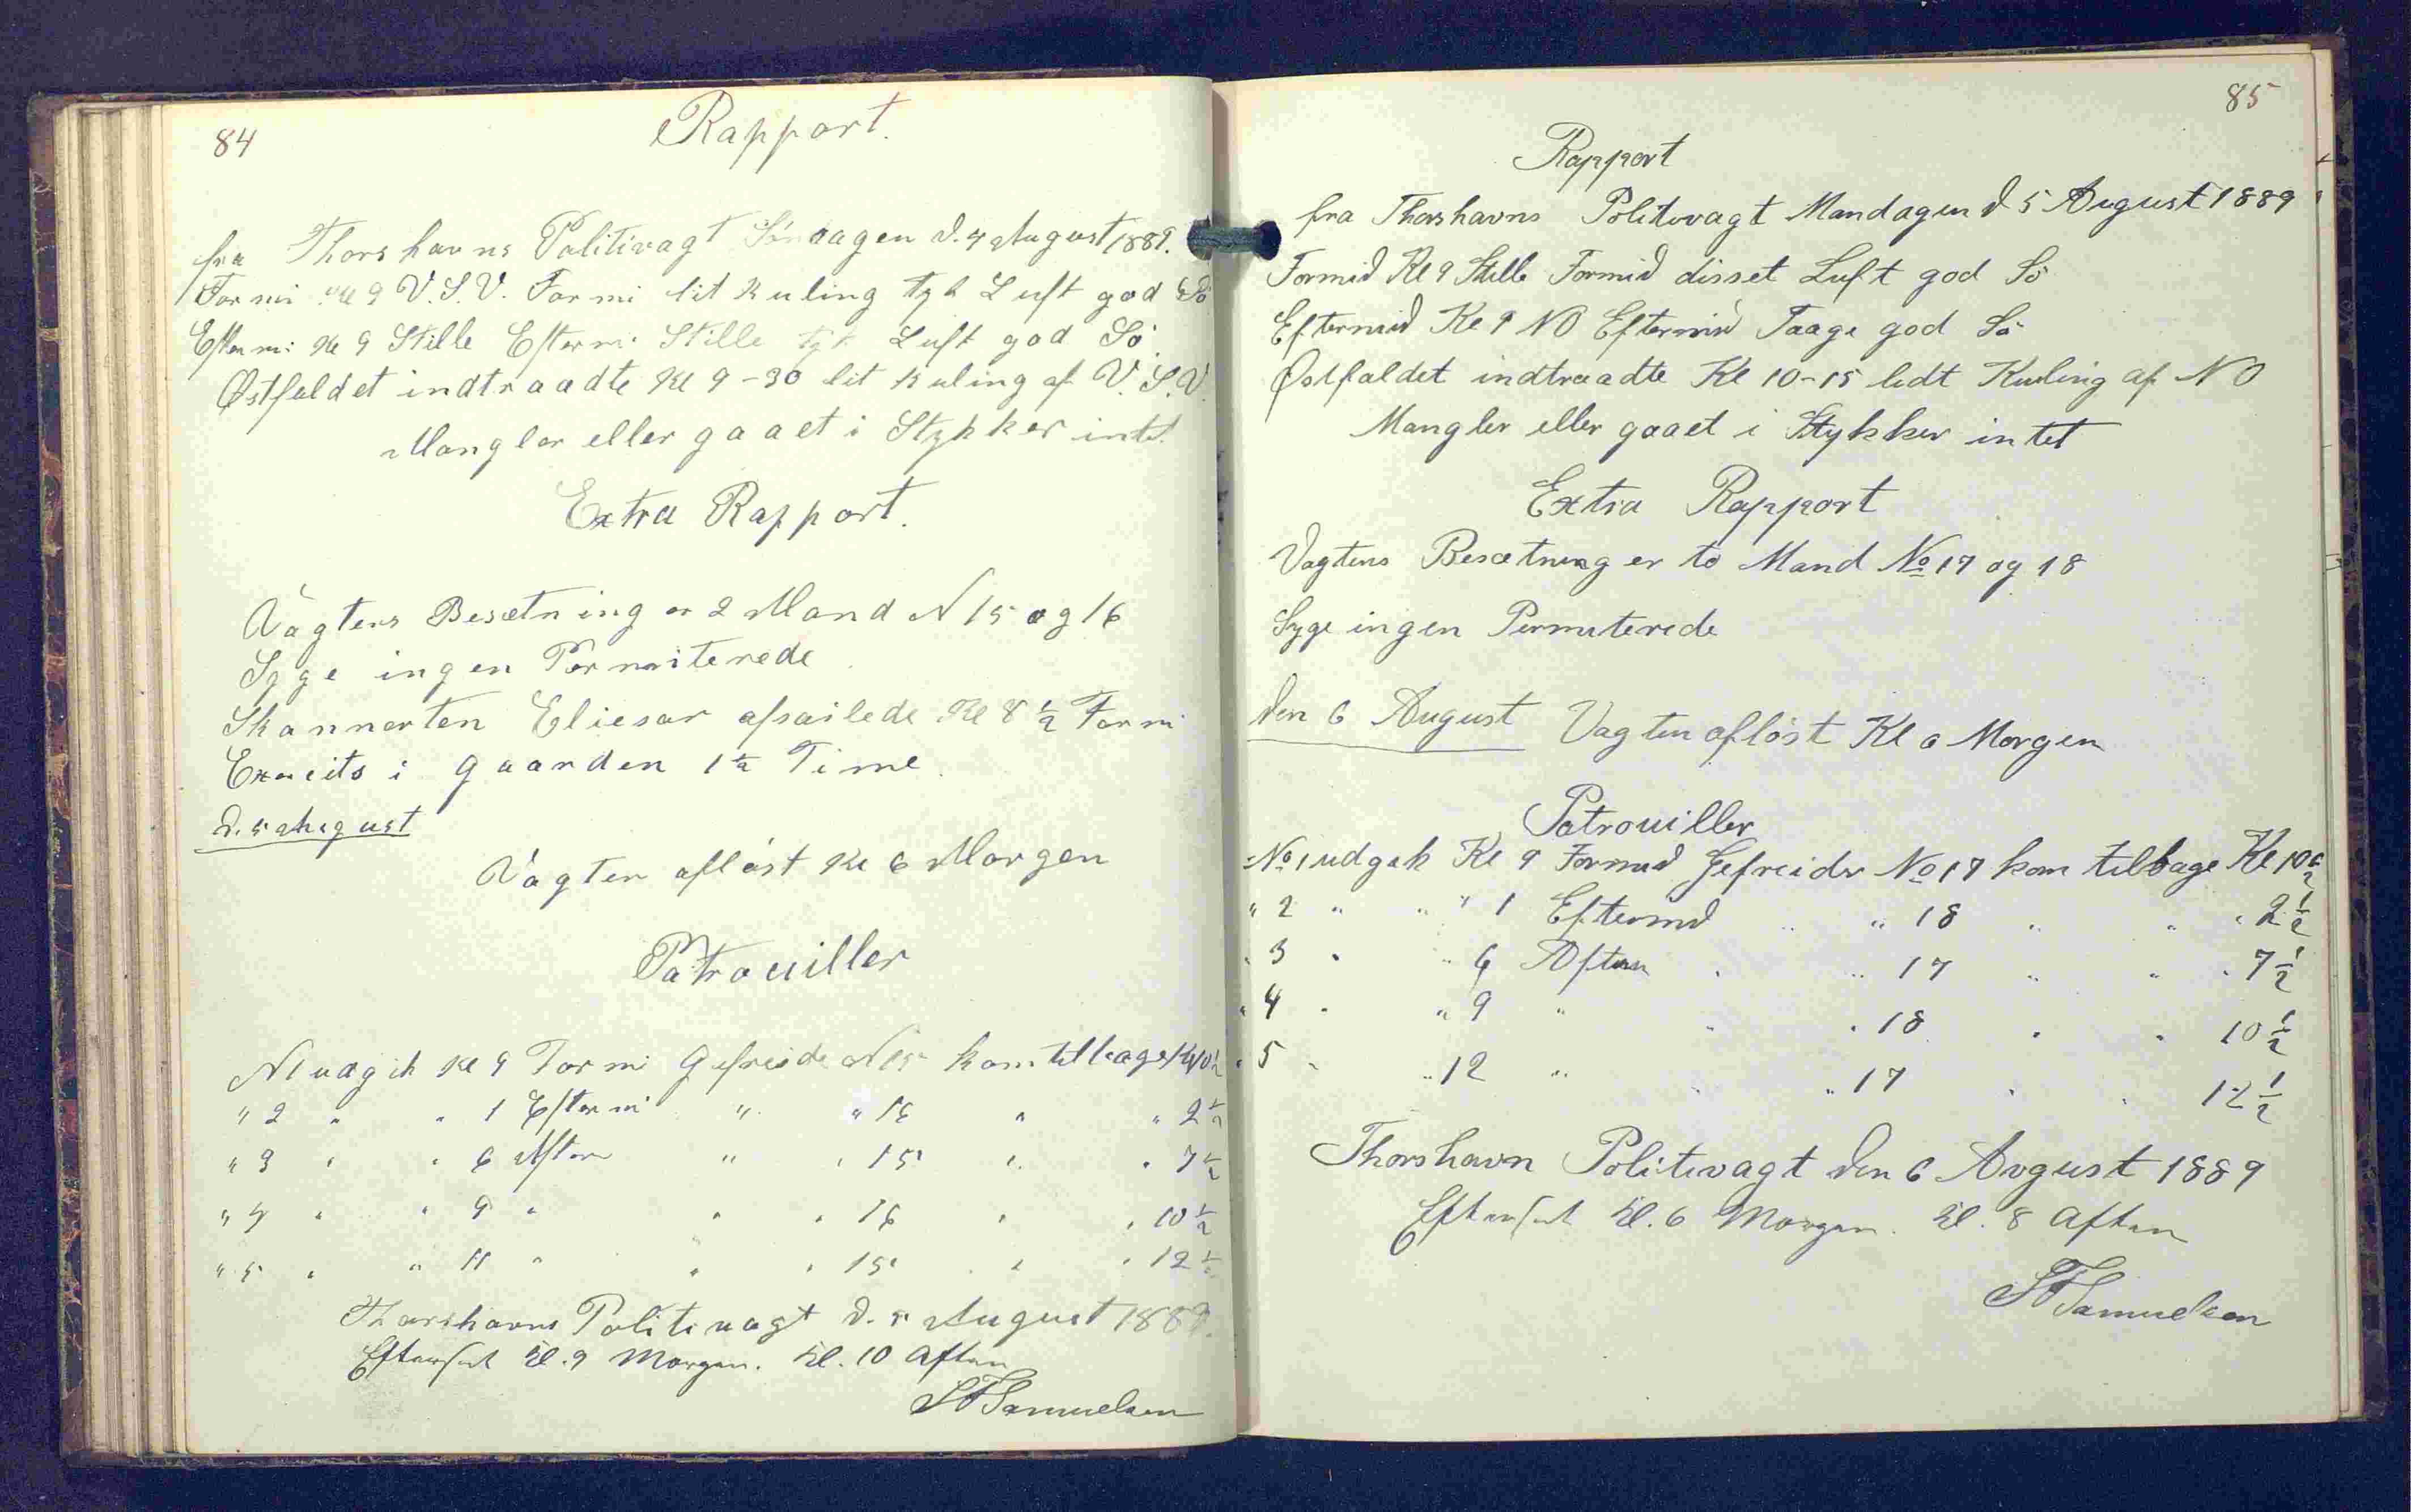 84
Rapport.
fra Thorshavns Politivagt Søndagen d. 4 August 1889.
Formi Kl 9 V.S.V. Formi lit Kuling tyk Luft god Sö
Eftermi Kl 9 Stille Eftermi Stille tyk Luft god Sö
Østfaldet indtraadte Kl 9-30 lit Kuling af V.S.V.
Mangler eller gaaet i Stykker intet.
Extra Rapport.
Vagtens Besætning er 2 Mand N 15 og 16
Syge ingen Permiterede
Skonnerten Eliesar afsailede Kl 8 ½ Formi
Exercits i Gaarden 1½ Time.
d. 5 August
Vagten afløst Kl 6 Morgen
Patrouiller
N 1 udgik Kl 9 Formi Gefreide N 15 kom tilbage Kl 10½
" 2 " " 1 Eftermi " " 16 " " 2½
" 3 " " 6 Aften " " 15 " " 7½
" 4 " " 9 " " " 16 " " 10½
" 5 " " 11 " " " 15 " " 12½
Thorshavns Politivagt d. 5 August 1889.
Efterset Kl. 9 Morgen. Kl. 10 Aften
Samuelsen
85
Rapport
fra Thorshavns Politivagt Mandagen d 5 August 1889
Formid Kl 9 Stille Formid disset Luft god Sö
Eftermid Kl 9 NO Eftermid Taage god Sö
Østfaldet indtraadte Kl 10-15 lidt Kuling af NO
Mangler eller gaaet i Stykker intet
Extra Rapport
Vagtens Besætning er to Mand No 17 og 18
Syge ingen Permiterede
den 6 August Vagten afløst Kl 6 Morgen
Patrouiller
No 1 udgik Kl 9 Formid Gefreider No 17 kom tilbage Kl 10½
" 2 " " " 1 Eftermid " " 18 " " " 2½
" 3 " " 6 Aften " " 17 " " " 7½
" 4 " " 9 " " " 18 " " 10½
" 5 " " 12 " " " 17 " " 12½
Thorshavn Politivagt den 6 August 1889
Efterset Kl. 6 Morgen. Kl. 8 Aften
Samuelsen